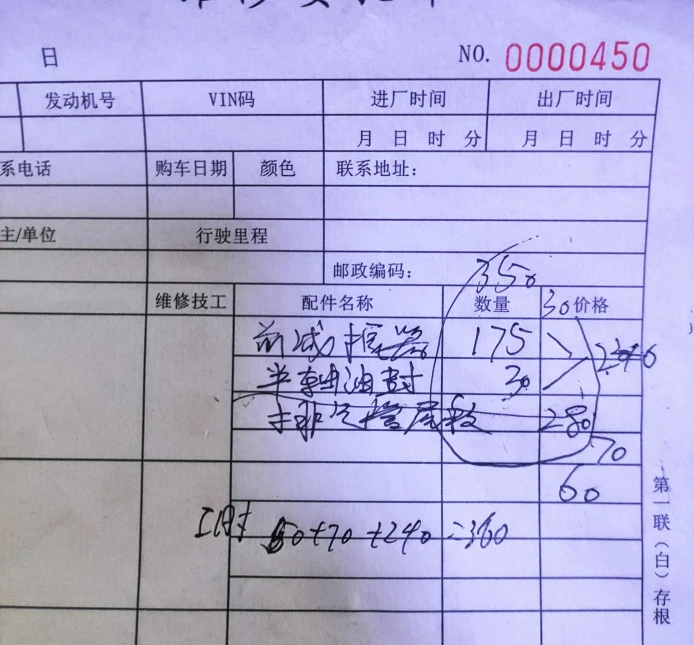 日 NO. 0000450
发动机号 VIN码 进厂时间 出厂时间
月 日 时 分 月 日 时 分
系电话 购车日期 颜色 联系地址：
主/单位 行驶里程
邮政编码： 350
维修技工 配件名称 数量 30 价格
前减振器 175
半轴油封 30
排气管尾段 280
70
60
工时 50+70+240=360
第一联（白）存根